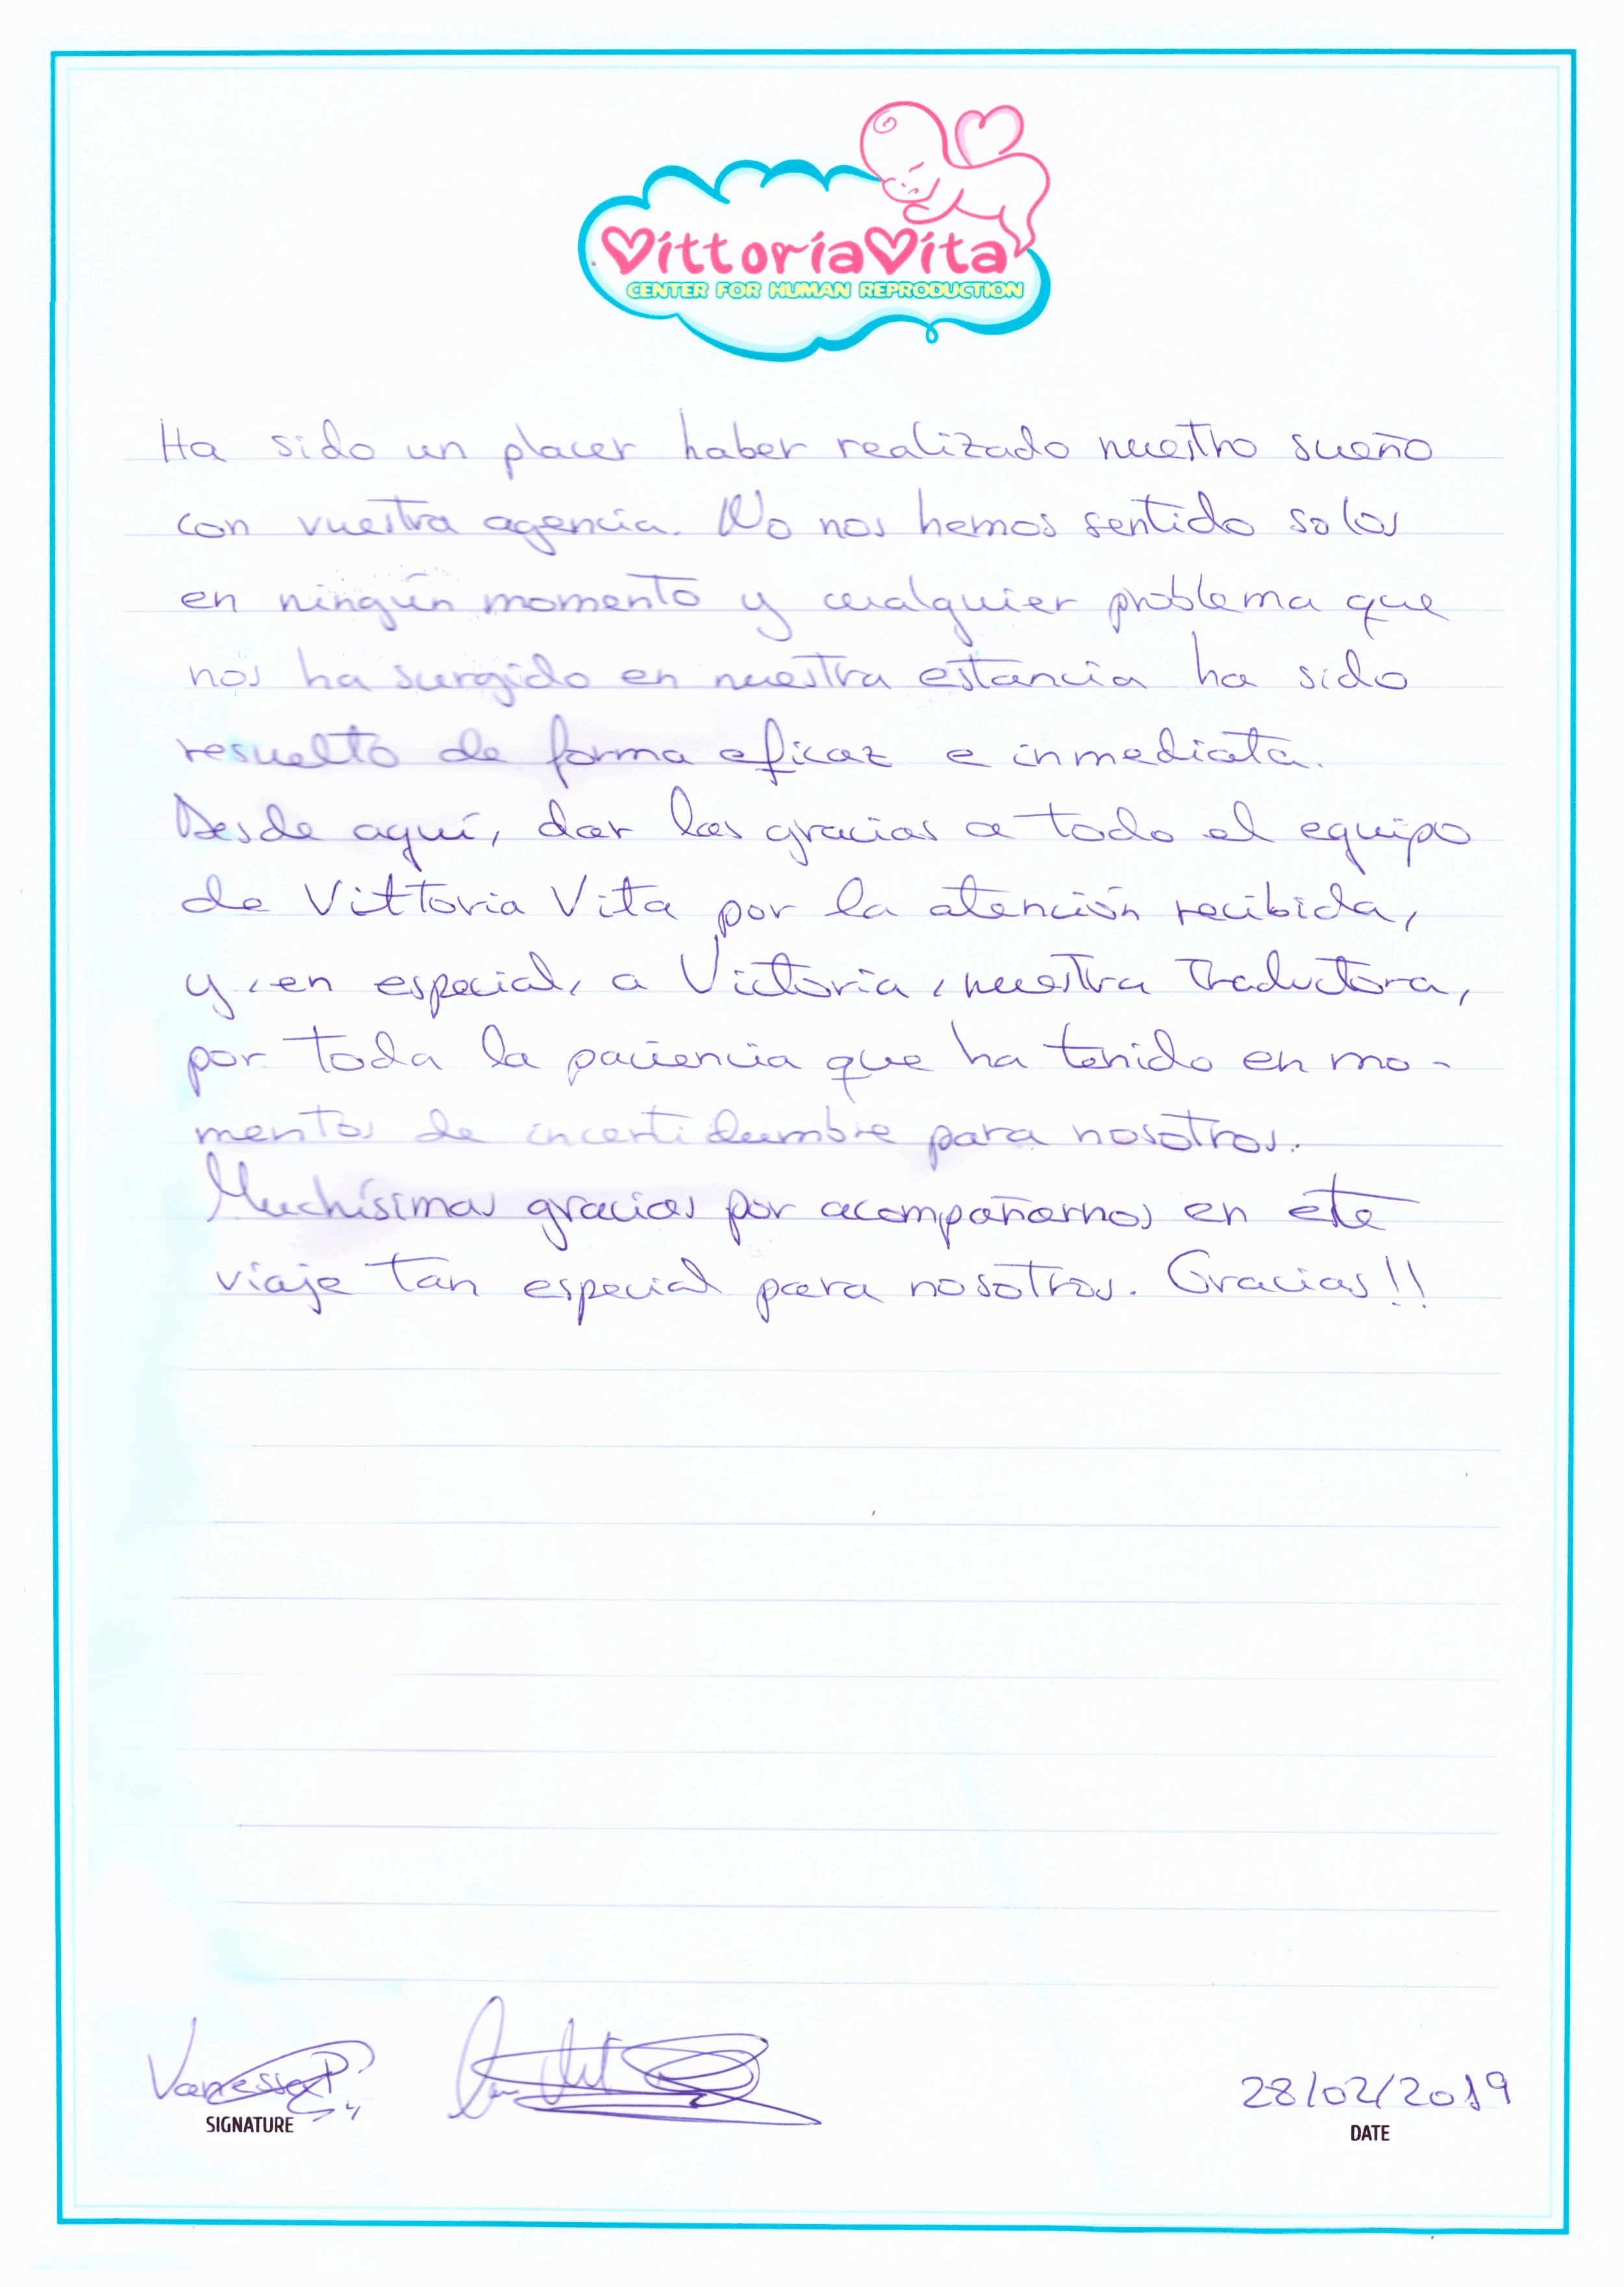 VittoriaVita
CENTER FOR HUMAN REPRODUCTION
Ha sido un placer haber realizado nuestro sueño
con vuestra agencia. No nos hemos sentido solos
en ningún momento y cualquier problema que
nos ha surgido en nuestra estancia ha sido
resuelto de forma eficaz e inmediata.
Desde aquí, dar las gracias a todo el equipo
de Vittoria Vita por la atención recibida,
y, en especial, a Victoria, nuestra traductora,
por toda la paciencia que ha tenido en mo-
mentos de incertidumbre para nosotros.
Muchísimas gracias por acompañarnos en este
viaje tan especial para nosotros. Gracias!!
Vanessa
28/02/2019
SIGNATURE
DATE